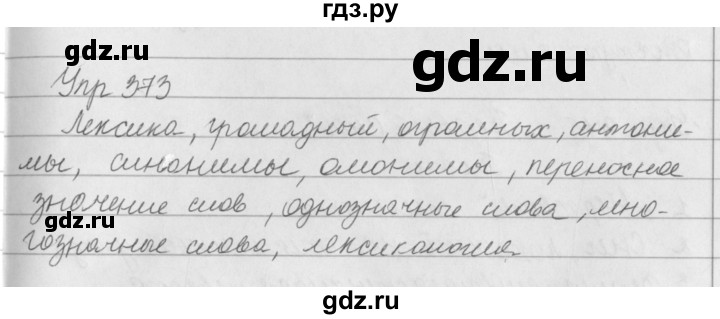 гдз.ру
gdz.ru
gdz.ru
Упр 373
Лексика, громадный, огромных, антони-
мы, синонимы, омонимы, переносное
значение слов, однозначные слова, мно-
гозначные слова, лексикология.
gdz.ru
gdz.ru
gdz.ru